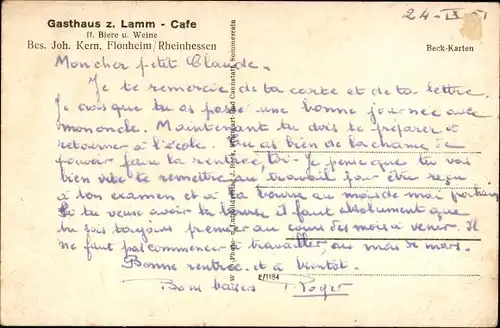 24-IX-51
Gasthaus z. Lamm - Cafe
ff. Biere u. Weine
Bes. Joh. Kern, Flonheim/Rheinhessen
Beck-Karten
Mon cher petit Claude.
Je te remercie de ta carte et de ta lettre.
Je crois que tu as passé une bonne journée avec
mononcle. Maintenant tu dois te préparer à
retourner à l'école. Tu as bien de la chance de
pouvoir faire la rentrée, toi. Je pense que tu vas
bien vite te remettre au travail pour être reçu
à ton examen et à la bourse au mois de mai prochain
Si tu veux avoir la bourse il faut absolument que
tu sois toujours premier au cours des mois à venir. Il
ne faut pas commencer à travailler au mois de mars.
Bonne rentrée et à bientôt.
Bons baisers Roger
E/1184
J. Beck, Stuttgart-Bad Cannstatt, Sommerrain